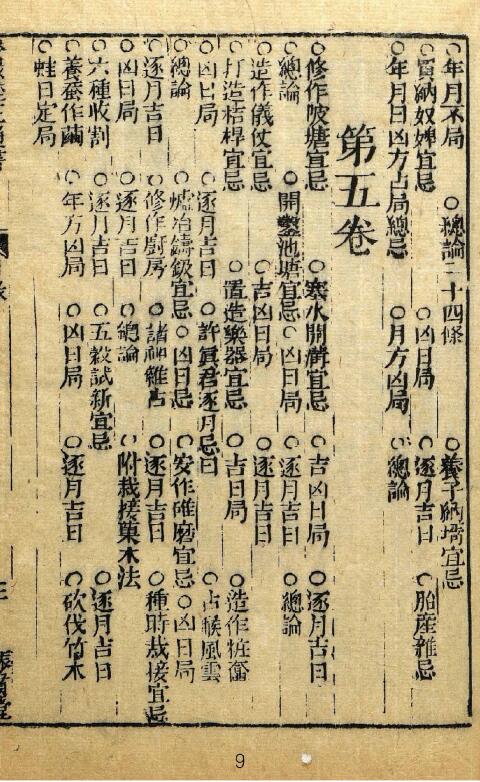 ○年月不局 ○總論二十四條 ○養子納壻宜忌
○買納奴婢宜忌 ○凶日局 ○逐月吉日 ○胎產雜忌
○年月日凶方占局總忌 ○月方凶局 ○總論
第五卷
○修作陂塘宜忌 ○塞水開溝宜忌 ○吉凶日局 ○逐月吉日
○總論 ○開鑿池塘宜忌 ○凶日局 ○逐月吉日 ○總論
○造作儀仗宜忌 ○吉凶日局 ○逐月吉日
○打造桔槹宜忌 ○置造樂器宜忌 ○吉日局 ○造作粧奩
○凶日局 ○逐月吉日 ○許真君逐月忌日 ○占候風雲
○總論 ○爐冶鑄鈒宜忌 ○凶日忌 ○安作碓磨宜忌 ○凶日局
○逐月吉日 ○修作廚房 ○諸神雜占 ○逐月吉日 ○種時栽接宜忌
○凶日局 ○逐月吉日 ○總論 ○附栽接菓木法
○六種收割 ○逐月吉日 ○五穀試新宜忌 ○逐月吉日
○養蚕作繭 ○年方凶局 ○凶日局 ○逐月吉日 ○砍伐竹木
○蛙日定局
9